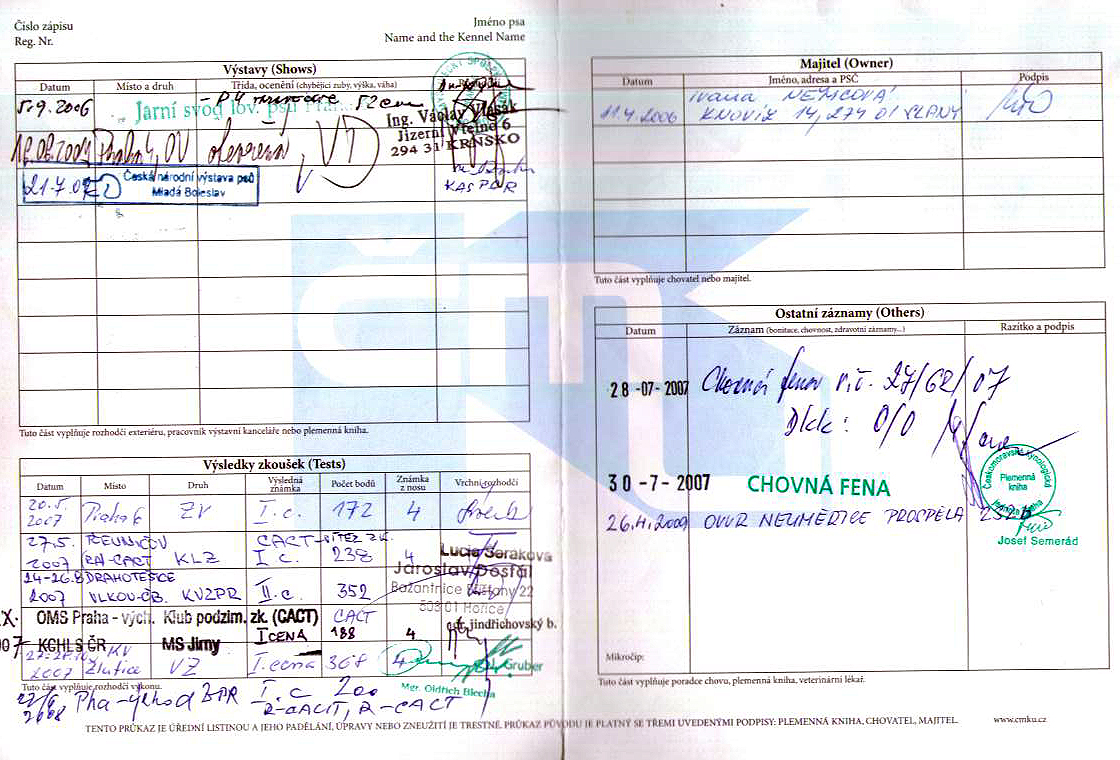 Číslo zápisu
Reg. Nr.
Jméno psa
Name and the Kennel Name
Výstavy (Shows)
Datum Místo a druh Třída, ocenění (chybějící zuby, výška, váha)
5.9.2006 Jarní svod lov. psů 52 cm
Ing. Václav
Jizerní Vtelno 6
294 31 KRNSKO
Praha 4, OV otevřená, VD
21.7.07 Česká národní výstava psů
Mladá Boleslav
KAŠPAR
Tuto část vyplňuje rozhodčí exteriéru, pracovník výstavní kanceláře nebo plemenná kniha.
Výsledky zkoušek (Tests)
Datum Místo Druh Výsledná známka Počet bodů Známka z nosu Vrchní rozhodčí
20.5. 2007 Praha 6 ZV I.c. 172 4
27.5. 2007 KLZ CACT I C. 238 4
Lucie Seraková
Jaroslav Dostál
Bažantnice Bříšťany 22
503 01 Hořice
24-26.8 2007 DRAHOTĚŠICE
VLKOV-ČB. KVZPR II.c. 352
OMS Praha - vých. Klub podzim. zk. (CACT) CACT
KCHLS ČR MS Jirny I CENA 188 4
Jindřichovský b.
2007 Žlutice VZ I.cena 308 4
Gruber
Mgr. Oldřich Blecha
Tuto část vyplňuje rozhodčí výkonu.
22/6 2008 Pha-východ BZPR I.c 200
R-CACIT, R-CACT
Majitel (Owner)
Datum Jméno, adresa a PSČ Podpis
11.4.2006 Ivana NĚMCOVÁ
KNOVÍZ 14, 274 01 SLANÝ
Tuto část vyplňuje chovatel nebo majitel.
Ostatní záznamy (Others)
Datum Záznam (bonitace, chovnost, zdravotní záznamy...) Razítko a podpis
28-07-2007 Chovná fena v.č. 27/62/07
Dkk: 0/0
30-7-2007 CHOVNÁ FENA
Českomoravská kynologická
Plemenná
kniha
26.4.2009 OVVR NEUMĚTICE PROSPĚLA
Josef Semerád
Mikročip:
Tuto část vyplňuje poradce chovu, plemenná kniha, veterinární lékař.
TENTO PRŮKAZ JE ÚŘEDNÍ LISTINOU A JEHO PADĚLÁNÍ, ÚPRAVY NEBO ZNEUŽITÍ JE TRESTNÉ. PRŮKAZ PŮVODU JE PLATNÝ SE TŘEMI UVEDENÝMI PODPISY: PLEMENNÁ KNIHA, CHOVATEL, MAJITEL.
www.cmku.cz